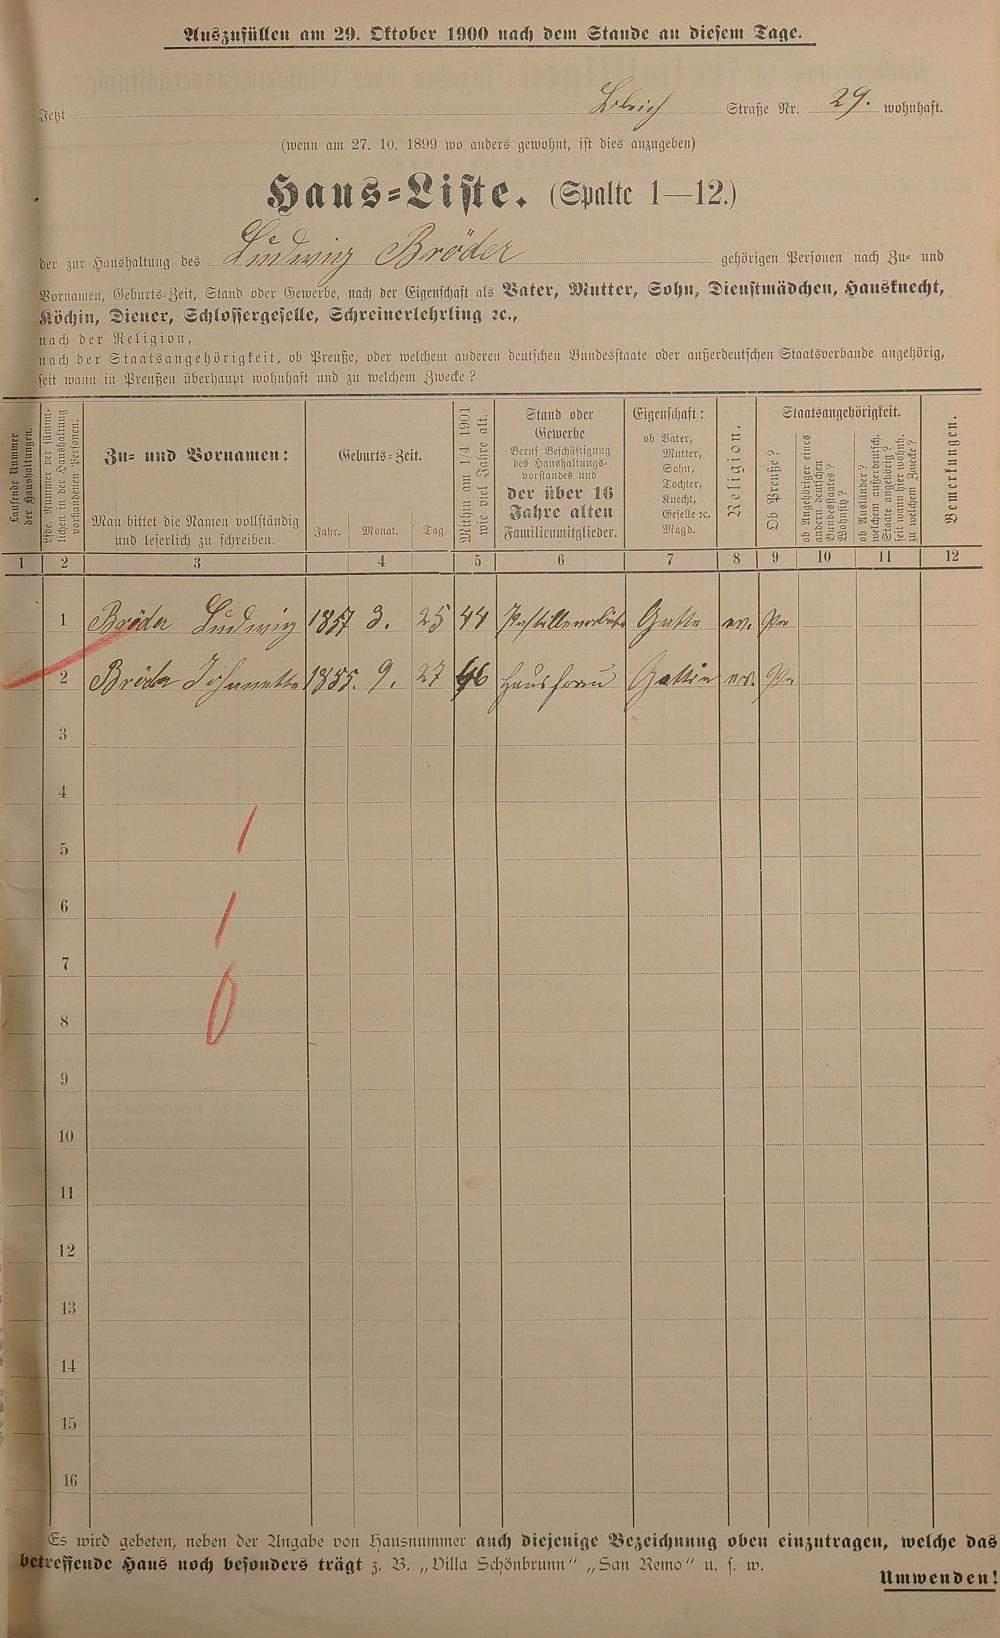 Auszufüllen am 29. Oktober 1900 nach dem Stande an diesem Tage.
Jetzt Straße Nr. 29. wohnhaft.
(wenn am 27. 10. 1899 wo anders gewohnt, ist dies anzugeben)
Haus-Liste. (Spalte 1—12.)
der zur Haushaltung des Ludwig Bröder gehörigen Personen nach Zu- und
Vornamen, Geburts-Zeit, Stand oder Gewerbe, nach der Eigenschaft als Vater, Mutter, Sohn, Dienstmädchen, Hausknecht,
Köchin, Diener, Schlossergeselle, Schreinerlehrling ꝛc.,
nach der Religion,
nach der Staatsangehörigkeit, ob Preuße, oder welchem anderen deutschen Bundesstaate oder außerdeutschen Staatsverbande angehörig,
seit wann in Preußen überhaupt wohnhaft und zu welchem Zwecke?
Laufende Nummer
der Haushaltungen.
Lfde. Nummer der sämmt-
lichen in der Haushaltung
vorhandenen Personen.
Zu- und Vornamen:
Man bittet die Namen vollständig
und leserlich zu schreiben.
Geburts-Zeit.
Jahr. Monat. Tag.
Mithin am 1/4 1901
wie viel Jahre alt.
Stand oder
Gewerbe
Beruf Beschäftigung
des Haushaltungs-
vorstandes und
der über 16
Jahre alten
Familienmitglieder.
Eigenschaft:
ob Vater,
Mutter,
Sohn,
Tochter,
Knecht,
Geselle ꝛc.
Magd.
Religion.
Staatsangehörigkeit.
Ob Preuße?
ob Angehöriger eines
andern deutschen
Bundesstaates?
Wohnsitz?
ob Ausländer?
welchem außerdeutsch.
Staate angehörig?
seit wann hier wohnh.
zu welchem Zwecke?
Bemerkungen.
1 2 3 4 5 6 7 8 9 10 11 12
1 Bröder Ludwig 1857 3. 25 44 Gatte ev. Pr
2 Bröder Johannette 1855. 9. 27 46 Hausfrau Gattin ev. Pr
3
4
5
6
7
8
9
10
11
12
13
14
15
16
1
1
0
Es wird gebeten, neben der Angabe von Hausnummer auch diejenige Bezeichnung oben einzutragen, welche das
betreffende Haus noch besonders trägt z. B. „Villa Schönbrunn" „San Remo" u. s. w.
Umwenden!